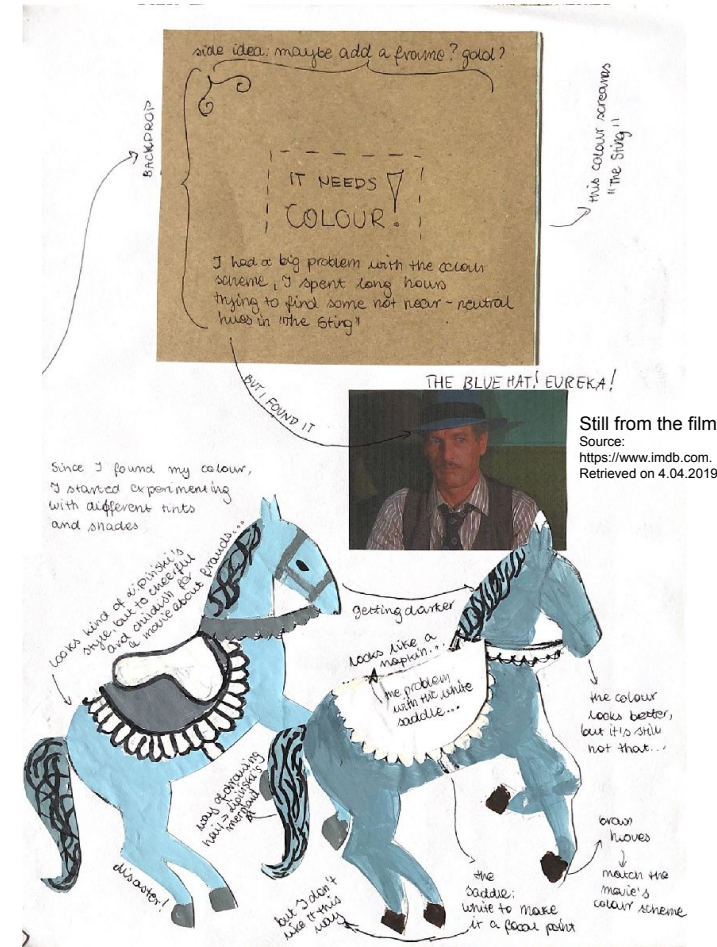 side idea: maybe add a frame? gold?
BACKDROP
this colour screams
"The Sting"
IT NEEDS
COLOUR!
I had a big problem with the colour
scheme, I spent long hours
trying to find some not near-neutral
hues in "The Sting"
BUT I FOUND IT
THE BLUE HAT! EUREKA!
Still from the film
Source:
https://www.imdb.com.
Retrieved on 4.04.2019
Since I found my colour,
I started experimenting
with different tints
and shades
looks kind of Lipiński's
style but to cheerful
and childish for
a movie about frauds...
getting darker
looks like a
napkin...
the problem
with the white
saddle...
the colour
looks better,
but it's still
not that...
way of drawing
hair → Lipiński's
disaster!
but I don't
like it this
way
the
saddle:
white to make
it a focal point
brown
hooves
match the
movie's
colour scheme